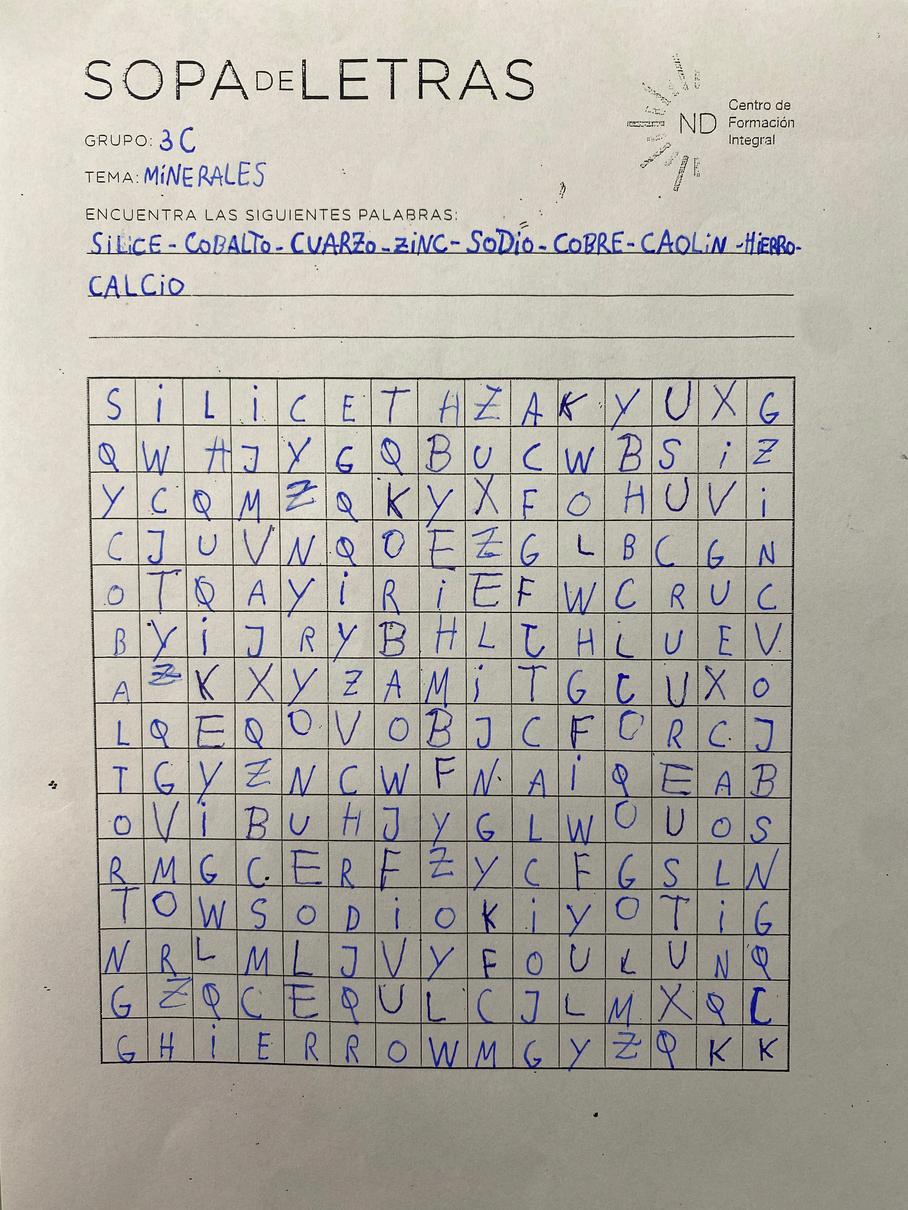 SOPA DE LETRAS
ND Centro de
Formación
Integral
GRUPO: 3C
TEMA: MiNERALES
ENCUENTRA LAS SIGUIENTES PALABRAS:
SiLiCE - COBALTO - CUARZO - ZiNC - SODiO - COBRE - CAOLiN - HiERRO -
CALCiO
S i L i C E T H Z A K Y U X G
Q W H J Y G Q B U C W B S i Z
Y C Q M Z Q K Y X F O H U V i
C J U V N Q O E Z G L B C G N
O T Q A Y i R i E F W C R U C
B Y i J R Y B H L C H L U E V
A Z K X Y Z A M i T G C U X O
L Q E Q O V O B J C F O R C J
T G Y Z N C W F N A i Q E A B
O V i B U H J Y G L W O U O S
R M G C E R F Z Y C F G S L N
T O W S O D i O K i Y O T i G
N R L M L J V Y F O U L U N Q
G Z Q C E Q U L C J L M X Q C
G H i E R R O W M G Y Z Q K K